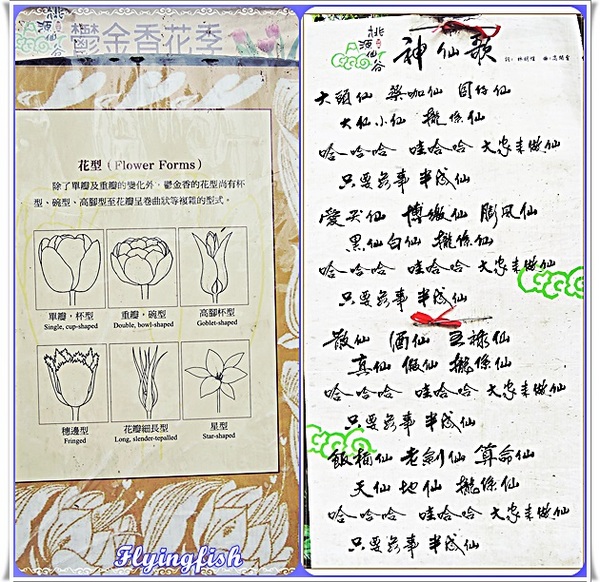 桃源仙谷
鬱金香花季
花型（Flower Forms）
除了單瓣及重瓣的變化外，鬱金香的花型尚有杯
型、碗型、高腳型至花瓣呈卷曲狀等複雜的型式。
單瓣，杯型
Single, cup-shaped
重瓣，碗型
Double, bowl-shaped
高腳杯型
Goblet-shaped
穗邊型
Fringed
花瓣細長型
Long, slender-tepalled
星型
Star-shaped
Flyingfish
桃源仙谷
神仙歌
大頭仙 柴咖仙 囝仔仙
大仙小仙 攏係仙
哈哈哈 哇哈哈 大家來做仙
只要無事 半成仙
愛哭仙 博繳仙 膨風仙
黑仙白仙 攏係仙
哈哈哈 哇哈哈 大家來做仙
只要無事 半成仙
散仙 酒仙 五祿仙
真仙 假仙 攏係仙
哈哈哈 哇哈哈 大家來做仙
只要無事 半成仙
飯桶仙 老創仙 算命仙
天仙地仙 攏係仙
哈哈哈 哇哈哈 大家來做仙
只要無事 半成仙